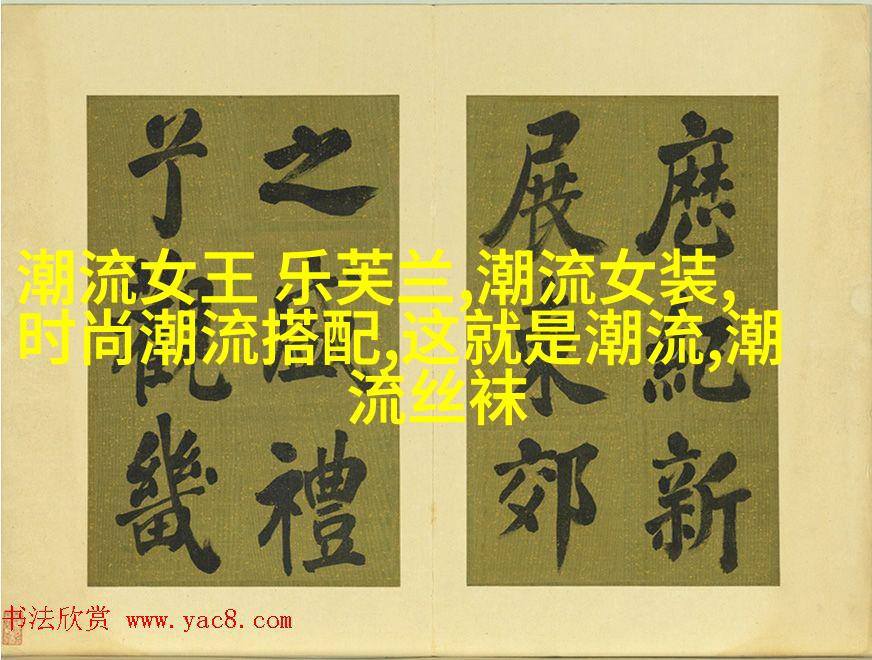 歷紀新
展東郊
之盛禮
觀畿
潮流女王 乐芙兰,潮流女装,
时尚潮流搭配,这就是潮流,潮
流丝袜
书法欣赏 www.yac8.com